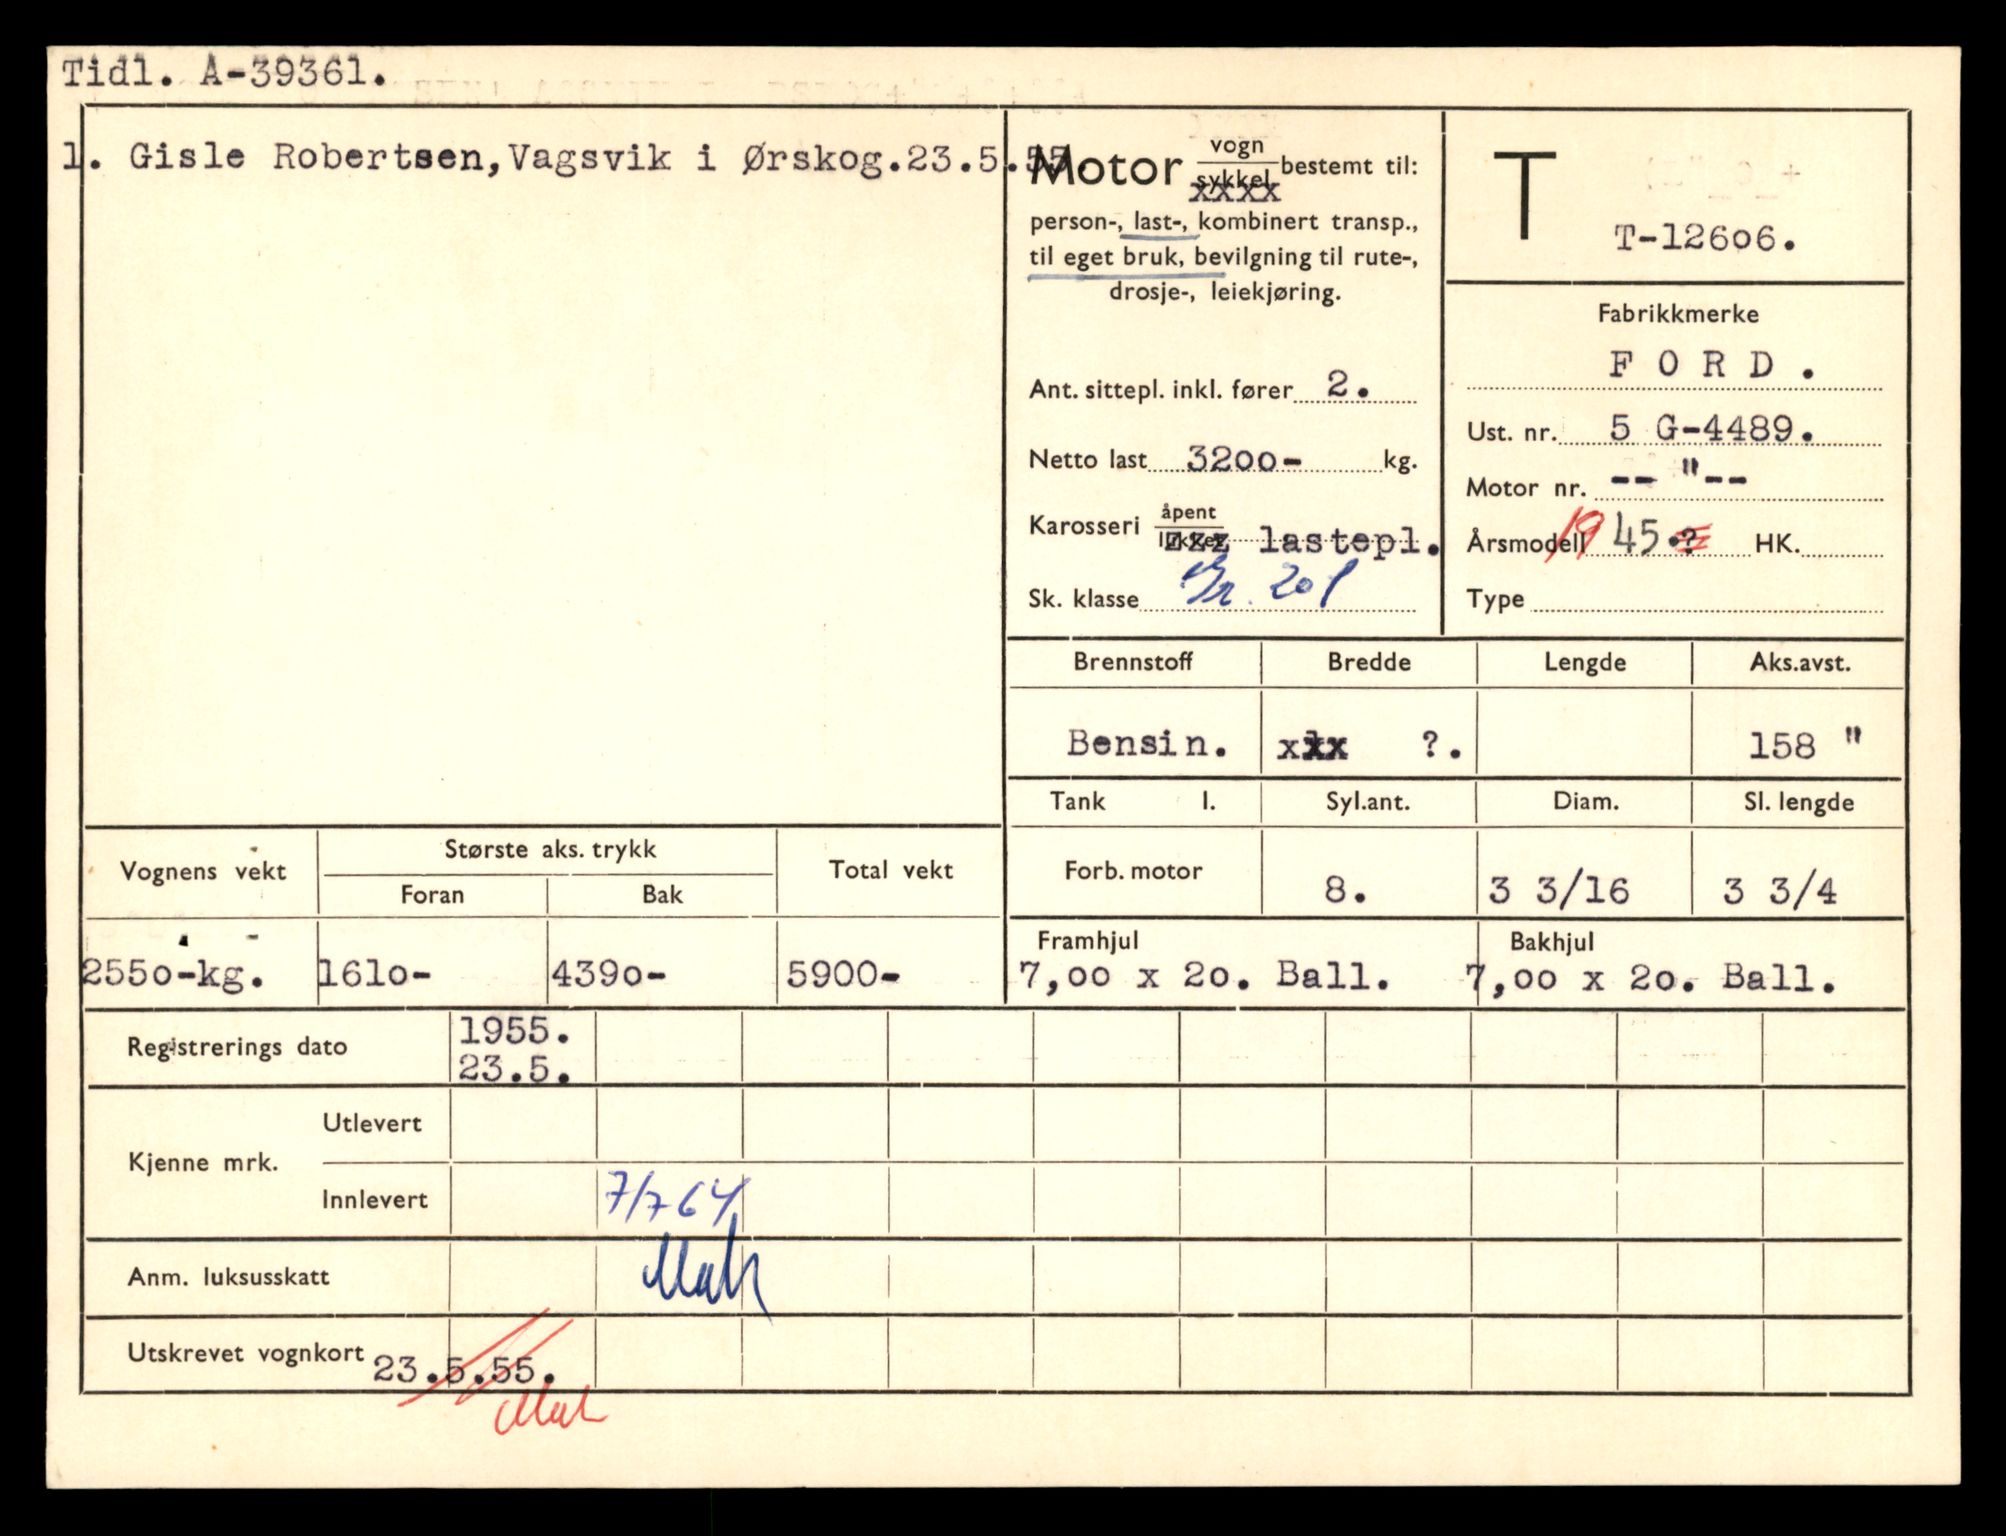 Tidl. A-39361.
1. Gisle Robertsen, Vagsvik i Ørskog.23.5.55.
Motor vogn sykkel bestemt til:
xxxx
person-, last-, kombinert transp.,
til eget bruk, bevilgning til rute-,
drosje-, leiekjøring.
Ant. sittepl. inkl. fører 2.
Netto last 3200- kg.
Karosseri åpent lukket lastepl.
Sk. klasse Gr. 201
T
T-12606.
Fabrikkmerke
F O R D .
Ust. nr. 5 G-4489.
Motor nr. -- "--
Årsmodell 1945.? HK.
Type
Brennstoff Bredde Lengde Aks.avst.
Bensin. xxx ?. 158 "
Tank l. Syl.ant. Diam. Sl. lengde
Forb. motor 8. 3 3/16 3 3/4
Framhjul Bakhjul
7,00 x 20. Ball. 7,00 x 20. Ball.
Vognens vekt Største aks. trykk Total vekt
Foran Bak
2550-kg. 1610- 4390- 5900-
Registrerings dato 1955.
23.5.
Kjenne mrk. Utlevert
Innlevert 7/7 64
Anm. luksusskatt
Utskrevet vognkort 23.5.55.